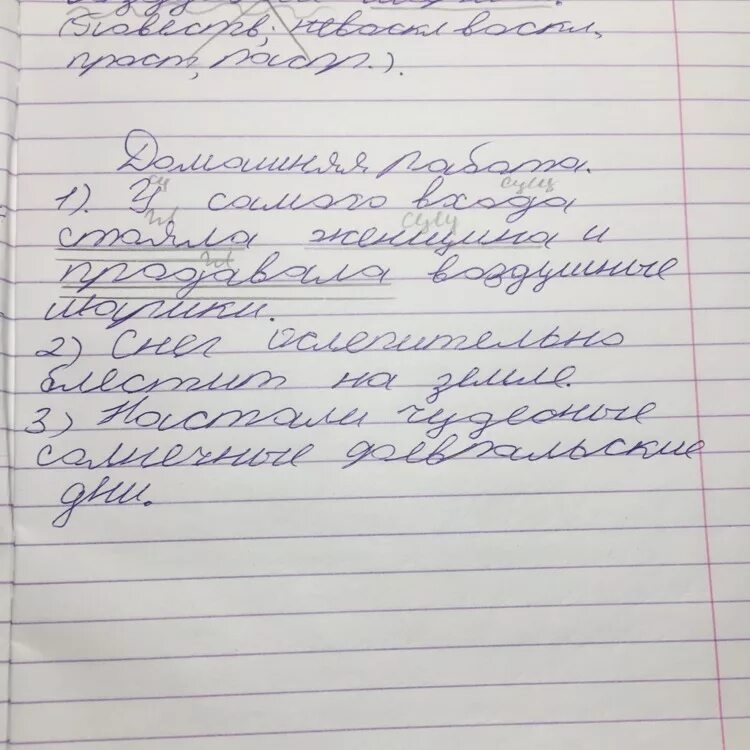 (Повеств., невоскл воскл,
прост, распр.).
Домашняя работа.
сущ
1). У самого входа
гл сущ
стояла женщина и
гл
продавала воздушные
шарики.
2) Снег ослепительно
блестит на земле.
3) Настали чудесные
солнечные февральские
дни.